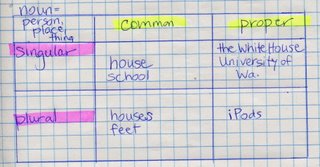 noun=
person,
place,
thing
common
proper
singular
house
school
the White House
University of
Wa.
plural
houses
feet
iPods